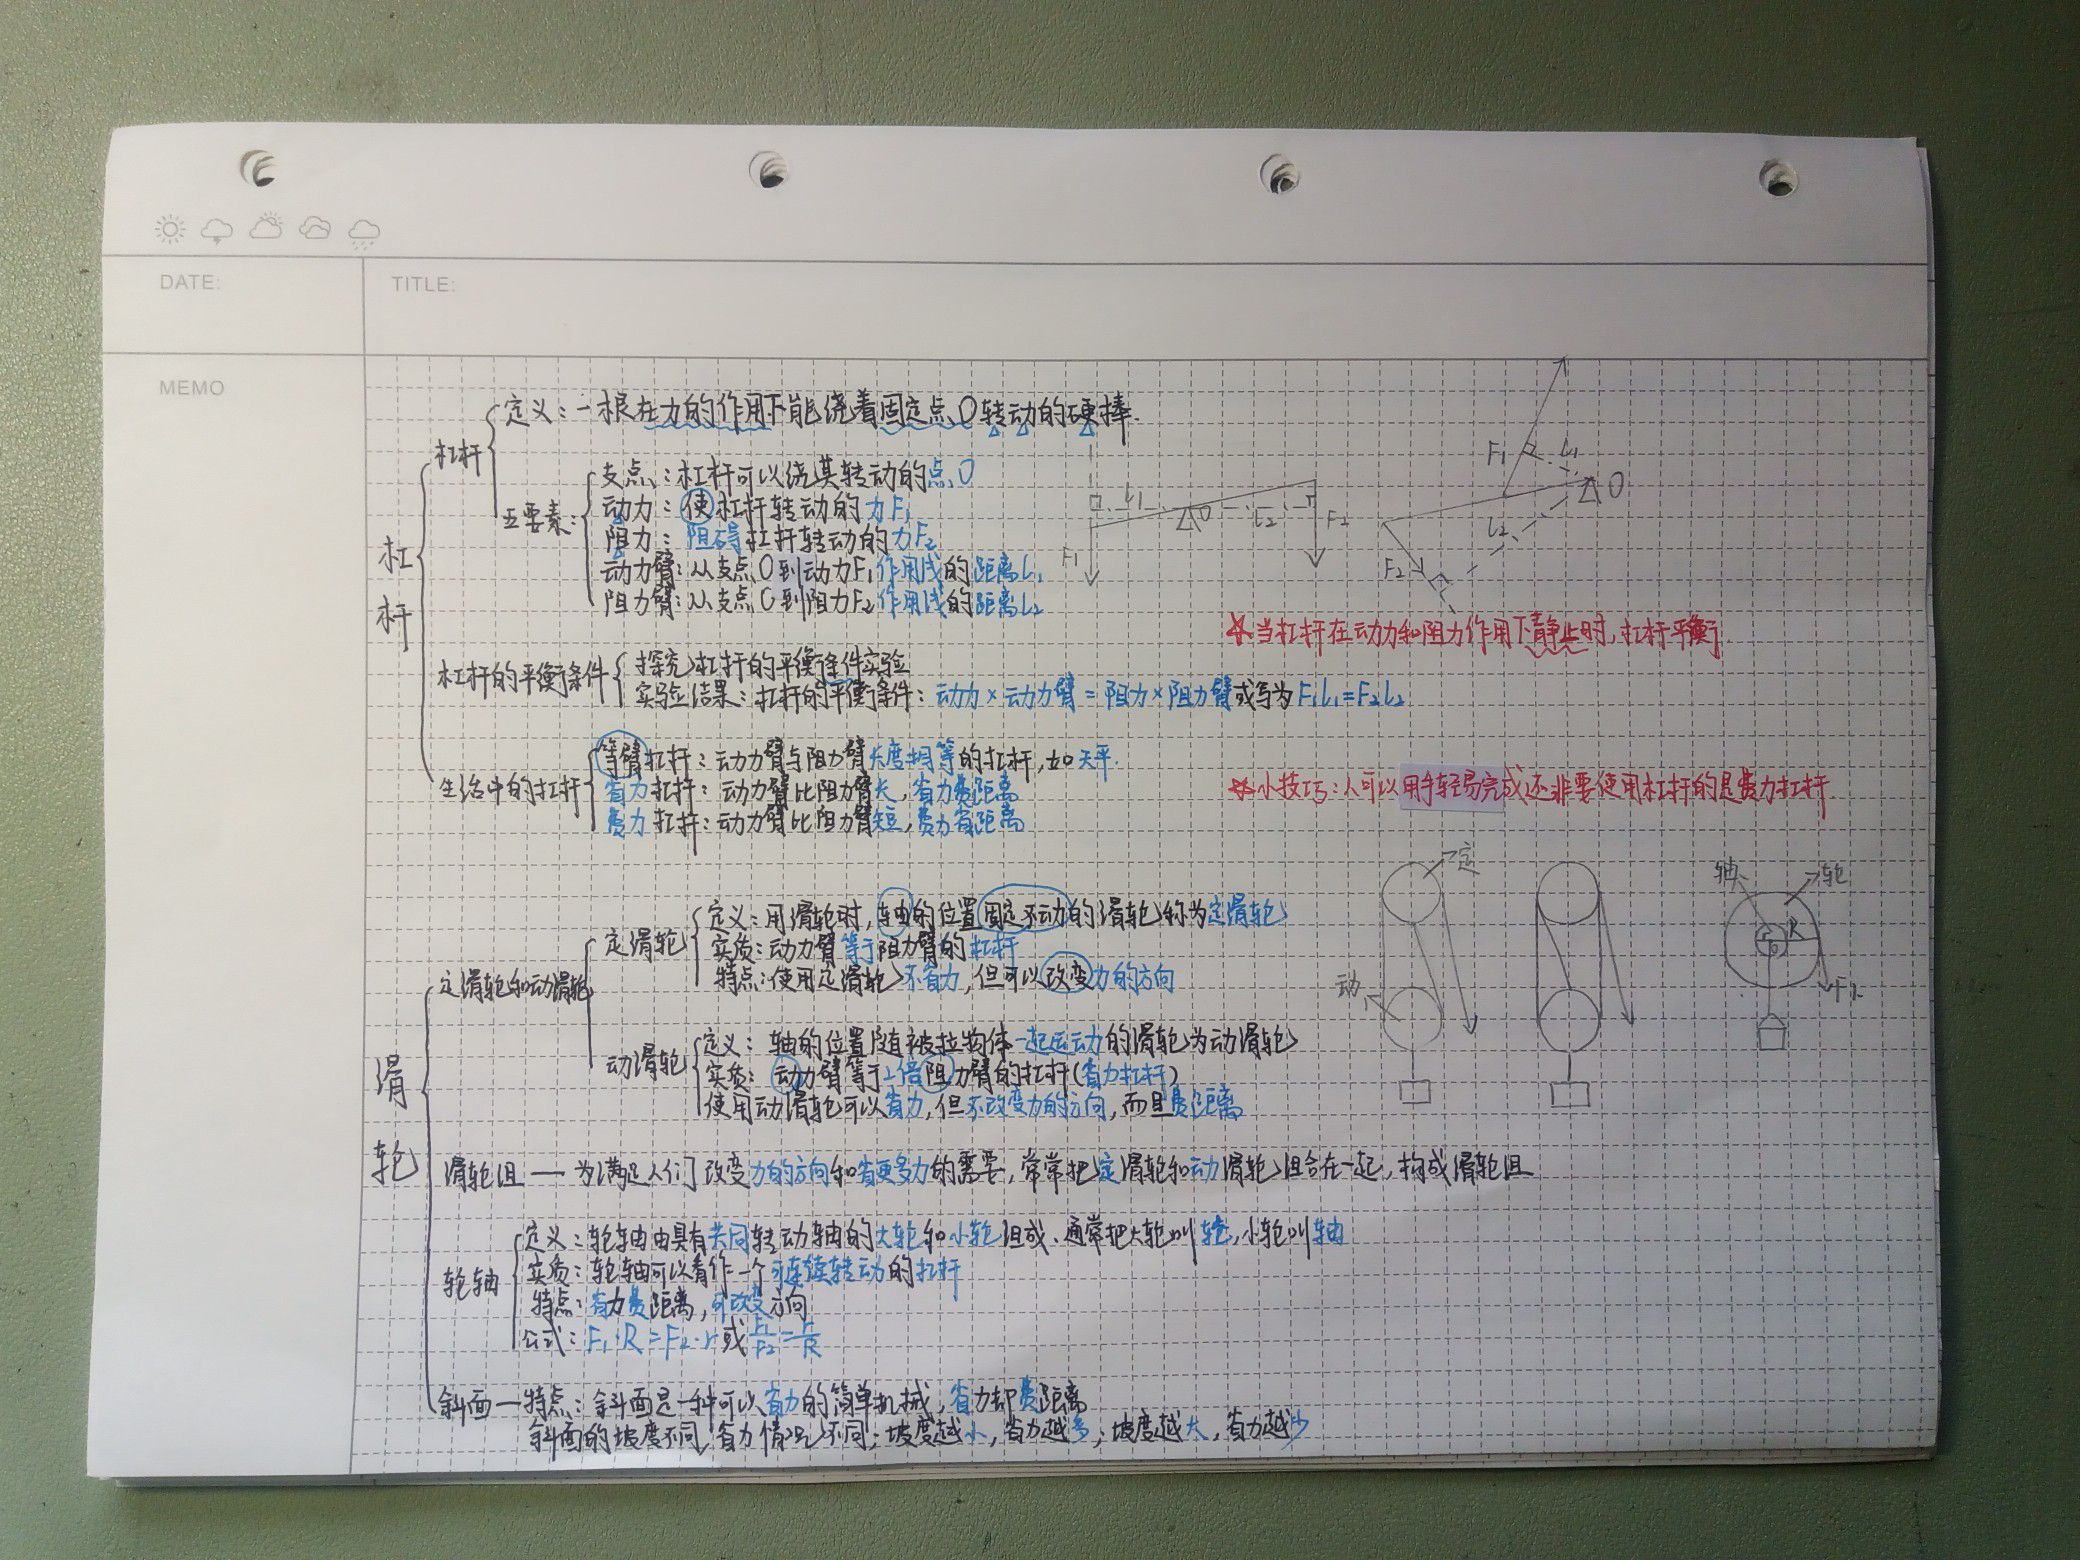 DATE:
TITLE:
MEMO
杠杆
杠杆
定义：一根在力的作用下能绕着固定点O转动的硬棒.
五要素：
支点：杠杆可以绕其转动的点O
动力：使杠杆转动的力F₁
阻力：阻碍杠杆转动的力F₂
动力臂：从支点O到动力F₁作用线的距离L₁
阻力臂：从支点O到阻力F₂作用线的距离L₂
L₁ O L₂ F₂ F₁
F₁ L₁ O L₂ F₂
☆当杠杆在动力和阻力作用下静止时，杠杆平衡
杠杆的平衡条件
探究杠杆的平衡条件实验
实验结果：杠杆的平衡条件：动力×动力臂=阻力×阻力臂或写为F₁L₁=F₂L₂
生活中的杠杆
等臂杠杆：动力臂与阻力臂长度相等的杠杆，如天平.
省力杠杆：动力臂比阻力臂长，省力费距离
费力杠杆：动力臂比阻力臂短，费力省距离
☆小技巧：人可以用手轻易完成还非要使用杠杆的是费力杠杆
滑轮
定滑轮和动滑轮
定滑轮
定义：用滑轮时，轴的位置固定不动的滑轮称为定滑轮
实质：动力臂等于阻力臂的杠杆
特点：使用定滑轮不省力，但可以改变力的方向
动滑轮
定义：轴的位置随被拉物体一起运动的滑轮为动滑轮
实质：动力臂等于2倍阻力臂的杠杆(省力杠杆)
使用动滑轮可以省力，但不改变力的方向，而且费距离
定
动
轴 轮
R
滑轮组——为满足人们改变力的方向和省更多力的需要，常常把定滑轮和动滑轮组合在一起，构成滑轮组
轮轴
定义：轮轴由具有共同转动轴的大轮和小轮组成、通常把大轮叫轮，小轮叫轴
实质：轮轴可以看作一个可连续转动的杠杆
特点：省力费距离，可改变方向
公式：F₁·R=F₂·r或F₁/F₂=r/R
斜面—特点：斜面是一种可以省力的简单机械，省力却费距离
斜面的坡度不同，省力情况不同；坡度越小，省力越多；坡度越大，省力越少